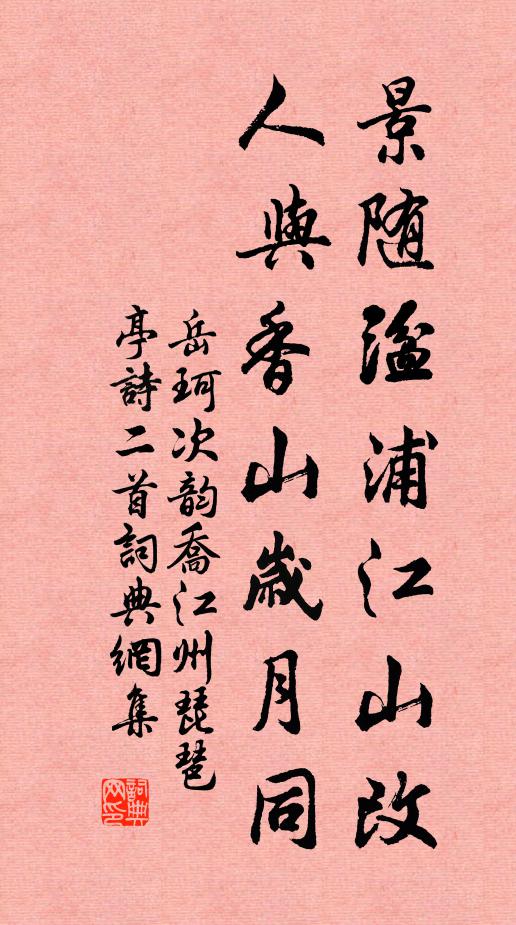 景随湓浦江山改
人與香山歲月同
岳珂次韵喬江州琵琶
亭詩二首詞典網集
詞典网印